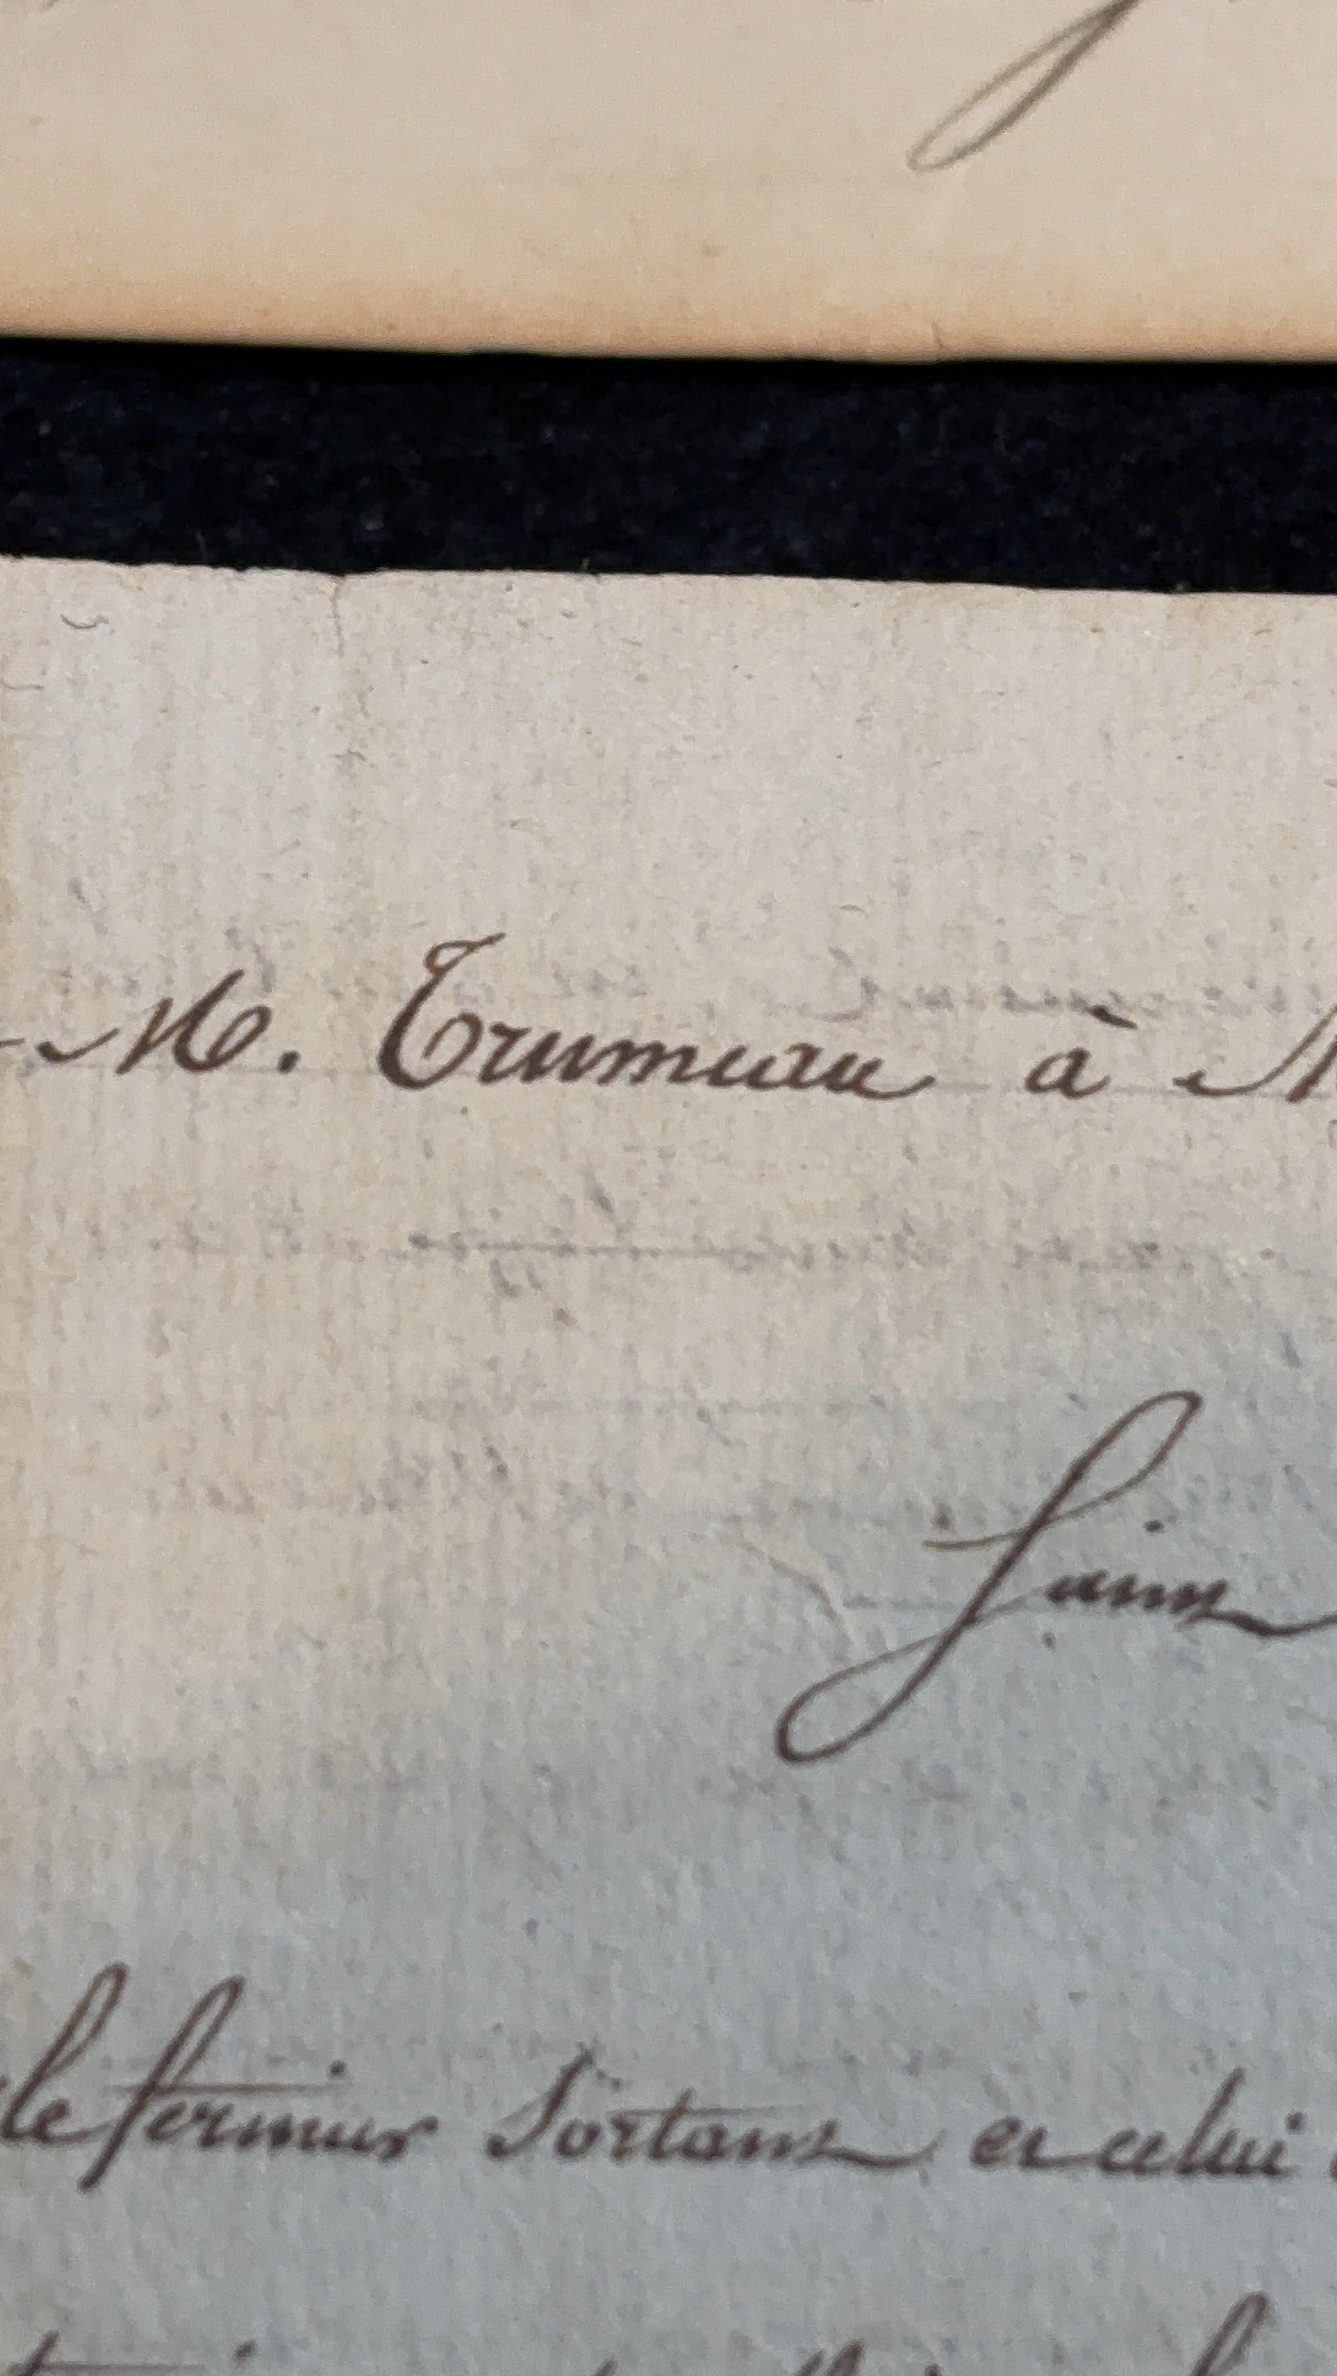 M. Trumeau à M
Saint
le fermier Sortant et celui